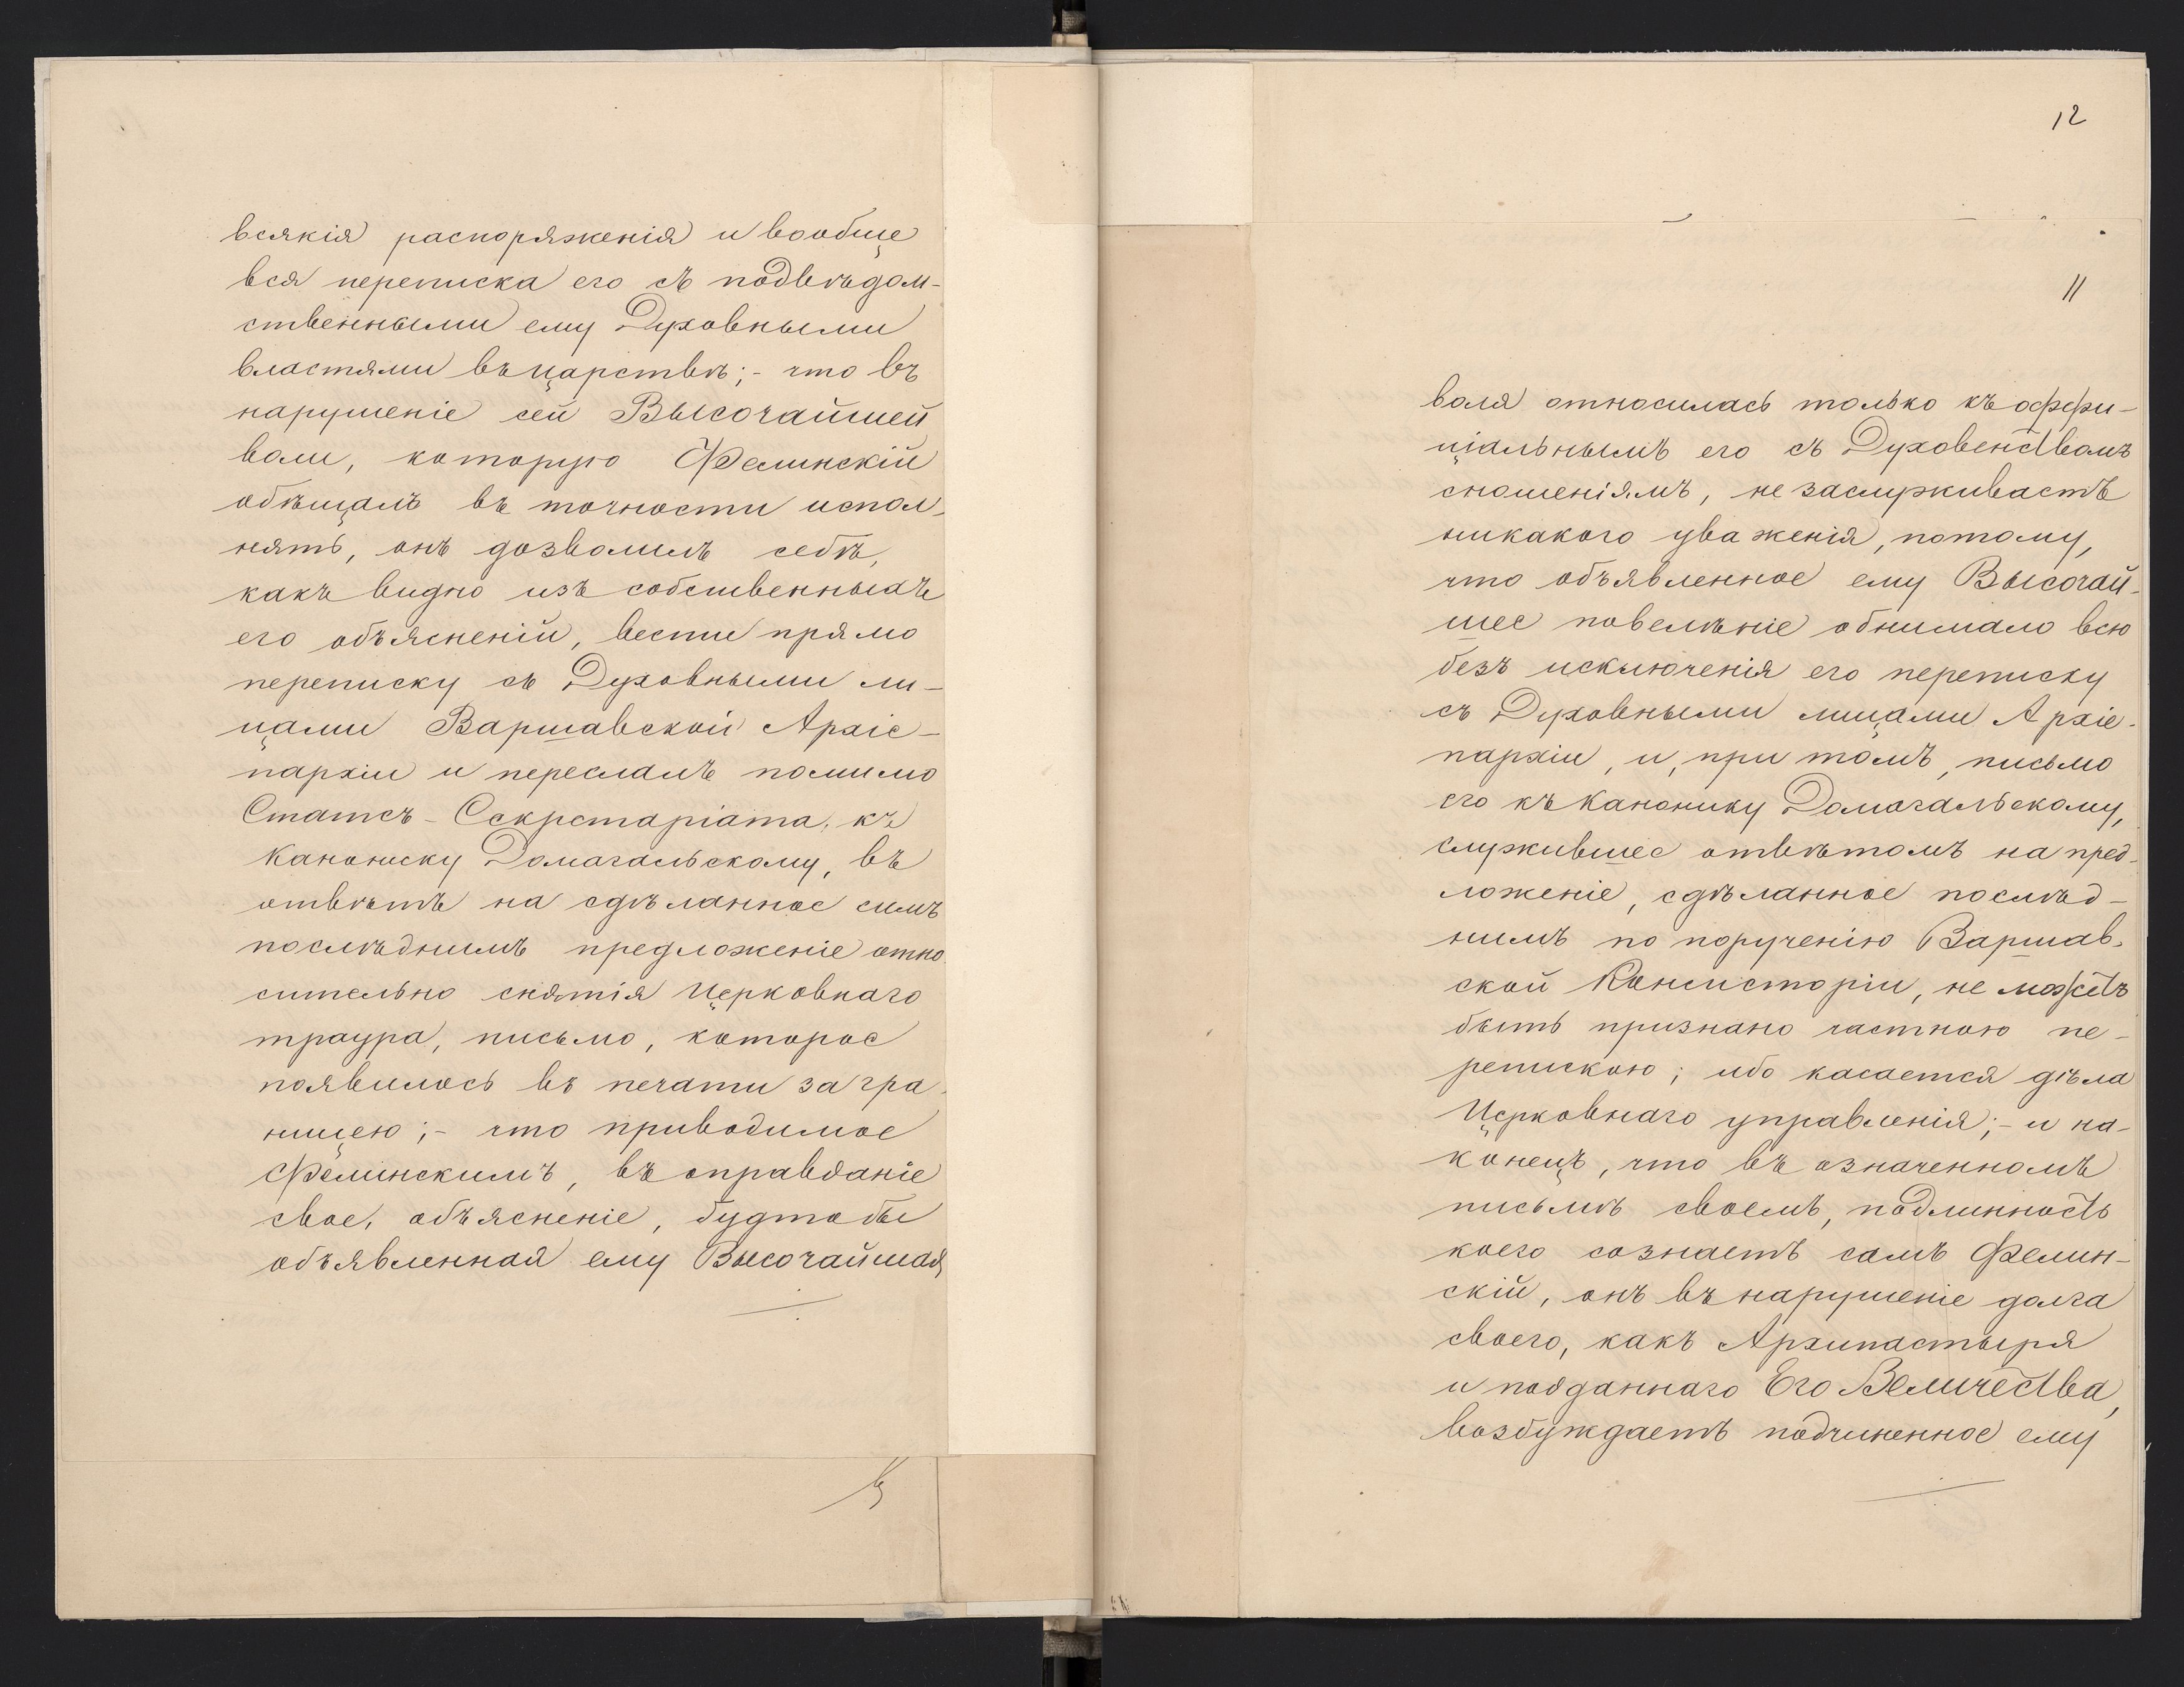 всякія распоряженія и вообще
вся переписка его съ подвѣдом-
ственными ему Духовными
властями въ царствѣ;- что въ
нарушеніе сей Высочайшей
воли, которую Фелинскій
обѣщалъ въ точности испол-
нять, онъ дозволилъ себѣ,
какъ видно изъ собственныхъ
его объясненій, вести прямо
переписку съ Духовными ли-
цами Варшавской Архіе-
пархіи и переслалъ помимо
Статсъ-Секретаріата, къ
Канонику Домагальскому, въ
отвѣтъ на сдѣланное симъ
послѣднимъ предложеніе отно-
сительно снятія Церковнаго
траура, письмо, которое
появилось въ печати за гра-
ницею;- что приводимое
Фелинскимъ, въ оправданіе
свое, объясненіе, будто бы
объявленная ему Высочайшая
12
11
воля относилась только къ оффи-
ціальнымъ его съ Духовенствомъ
сношеніямъ, не заслуживаетъ
никакого уваженія, потому,
что объявленное ему Высочай-
шее повелѣніе обнимало всю
безъ исключенія его переписку
съ Духовными лицами Архіе-
пархіи, и, при томъ, письмо
его къ Канонику Домагальскому,
служившее отвѣтомъ на пред-
ложеніе, сдѣланное послѣд-
нимъ по порученію Варшав-
ской Консисторіи, не можетъ
быть признано частною пе-
репискою; ибо касается дѣла
Церковнаго управленія;- и на-
конецъ, что въ означенномъ
письмѣ своемъ, подлинность
коего сознаетъ самъ Фелин-
скій, онъ въ нарушеніе долга
своего, какъ Архипастыря
и подданнаго Его Величества,
возбуждаетъ подчиненное ему